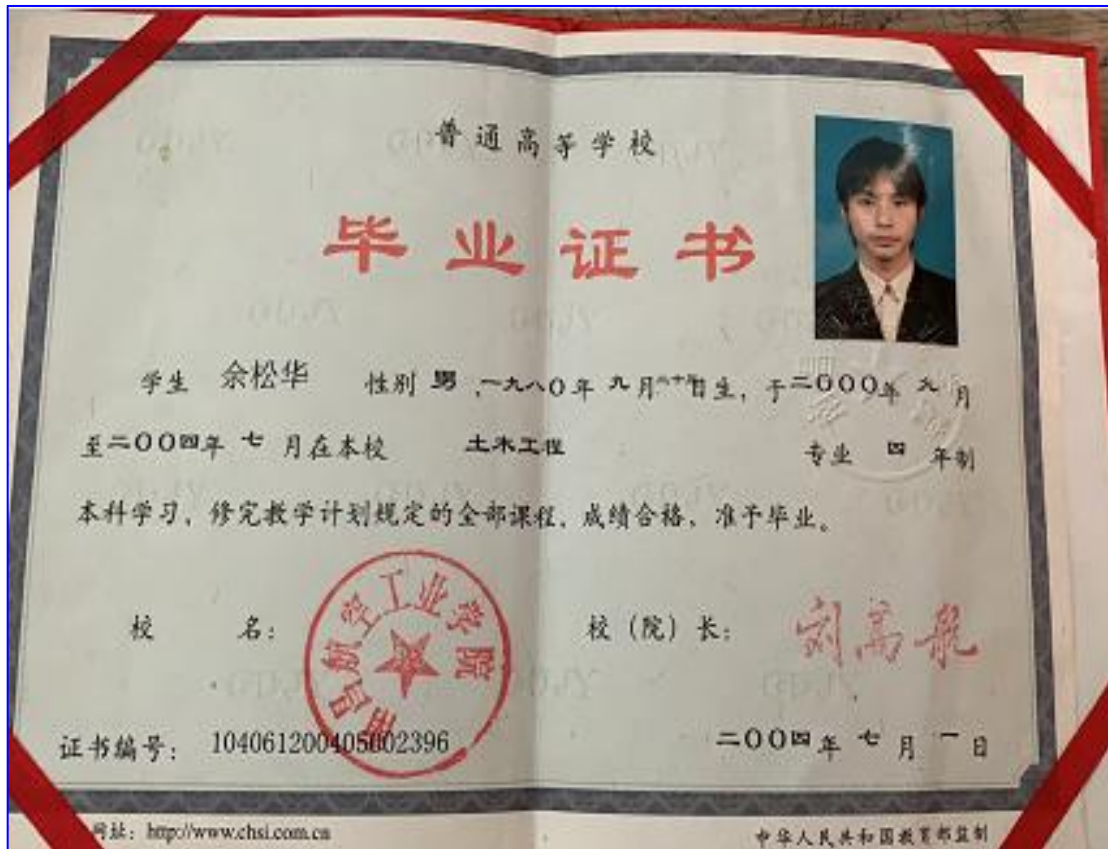 普通高等学校
毕业证书
学生 余松华 性别 男，一九八〇年 九月二十日生，于二〇〇〇年 九月
至二〇〇四年 七 月在本校 土木工程 专业 四 年制
本科学习，修完教学计划规定的全部课程，成绩合格，准予毕业。
校 名： 校（院）长： 刘高航
南昌航空工业学院
证书编号： 104061200405002396 二〇〇四年 七 月 一 日
网址：http://www.chsi.com.cn 中华人民共和国教育部监制